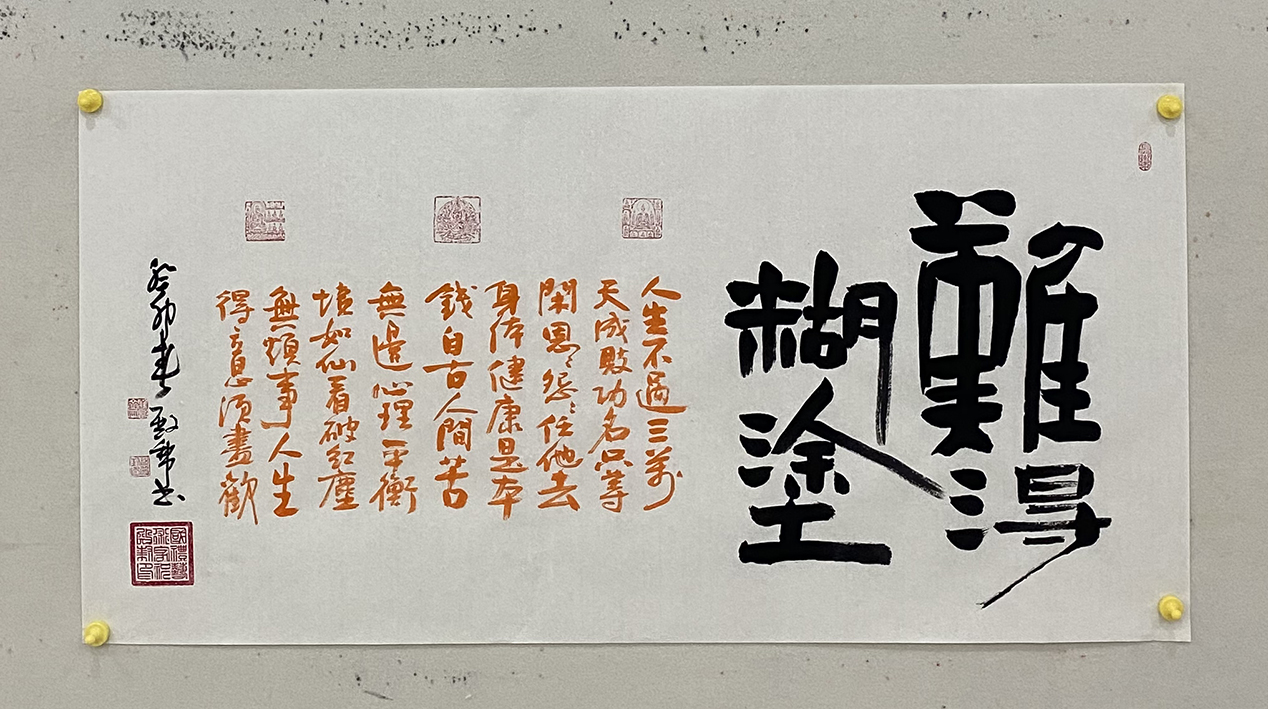 難得
糊塗
人生不過三萬
天成敗功名只等
閑恩〻怨〻任他去
身体健康是本
錢自古人間苦
無邊心理平衡
境如仙看破紅塵
無煩事人生
得意須盡歡
癸卯春书